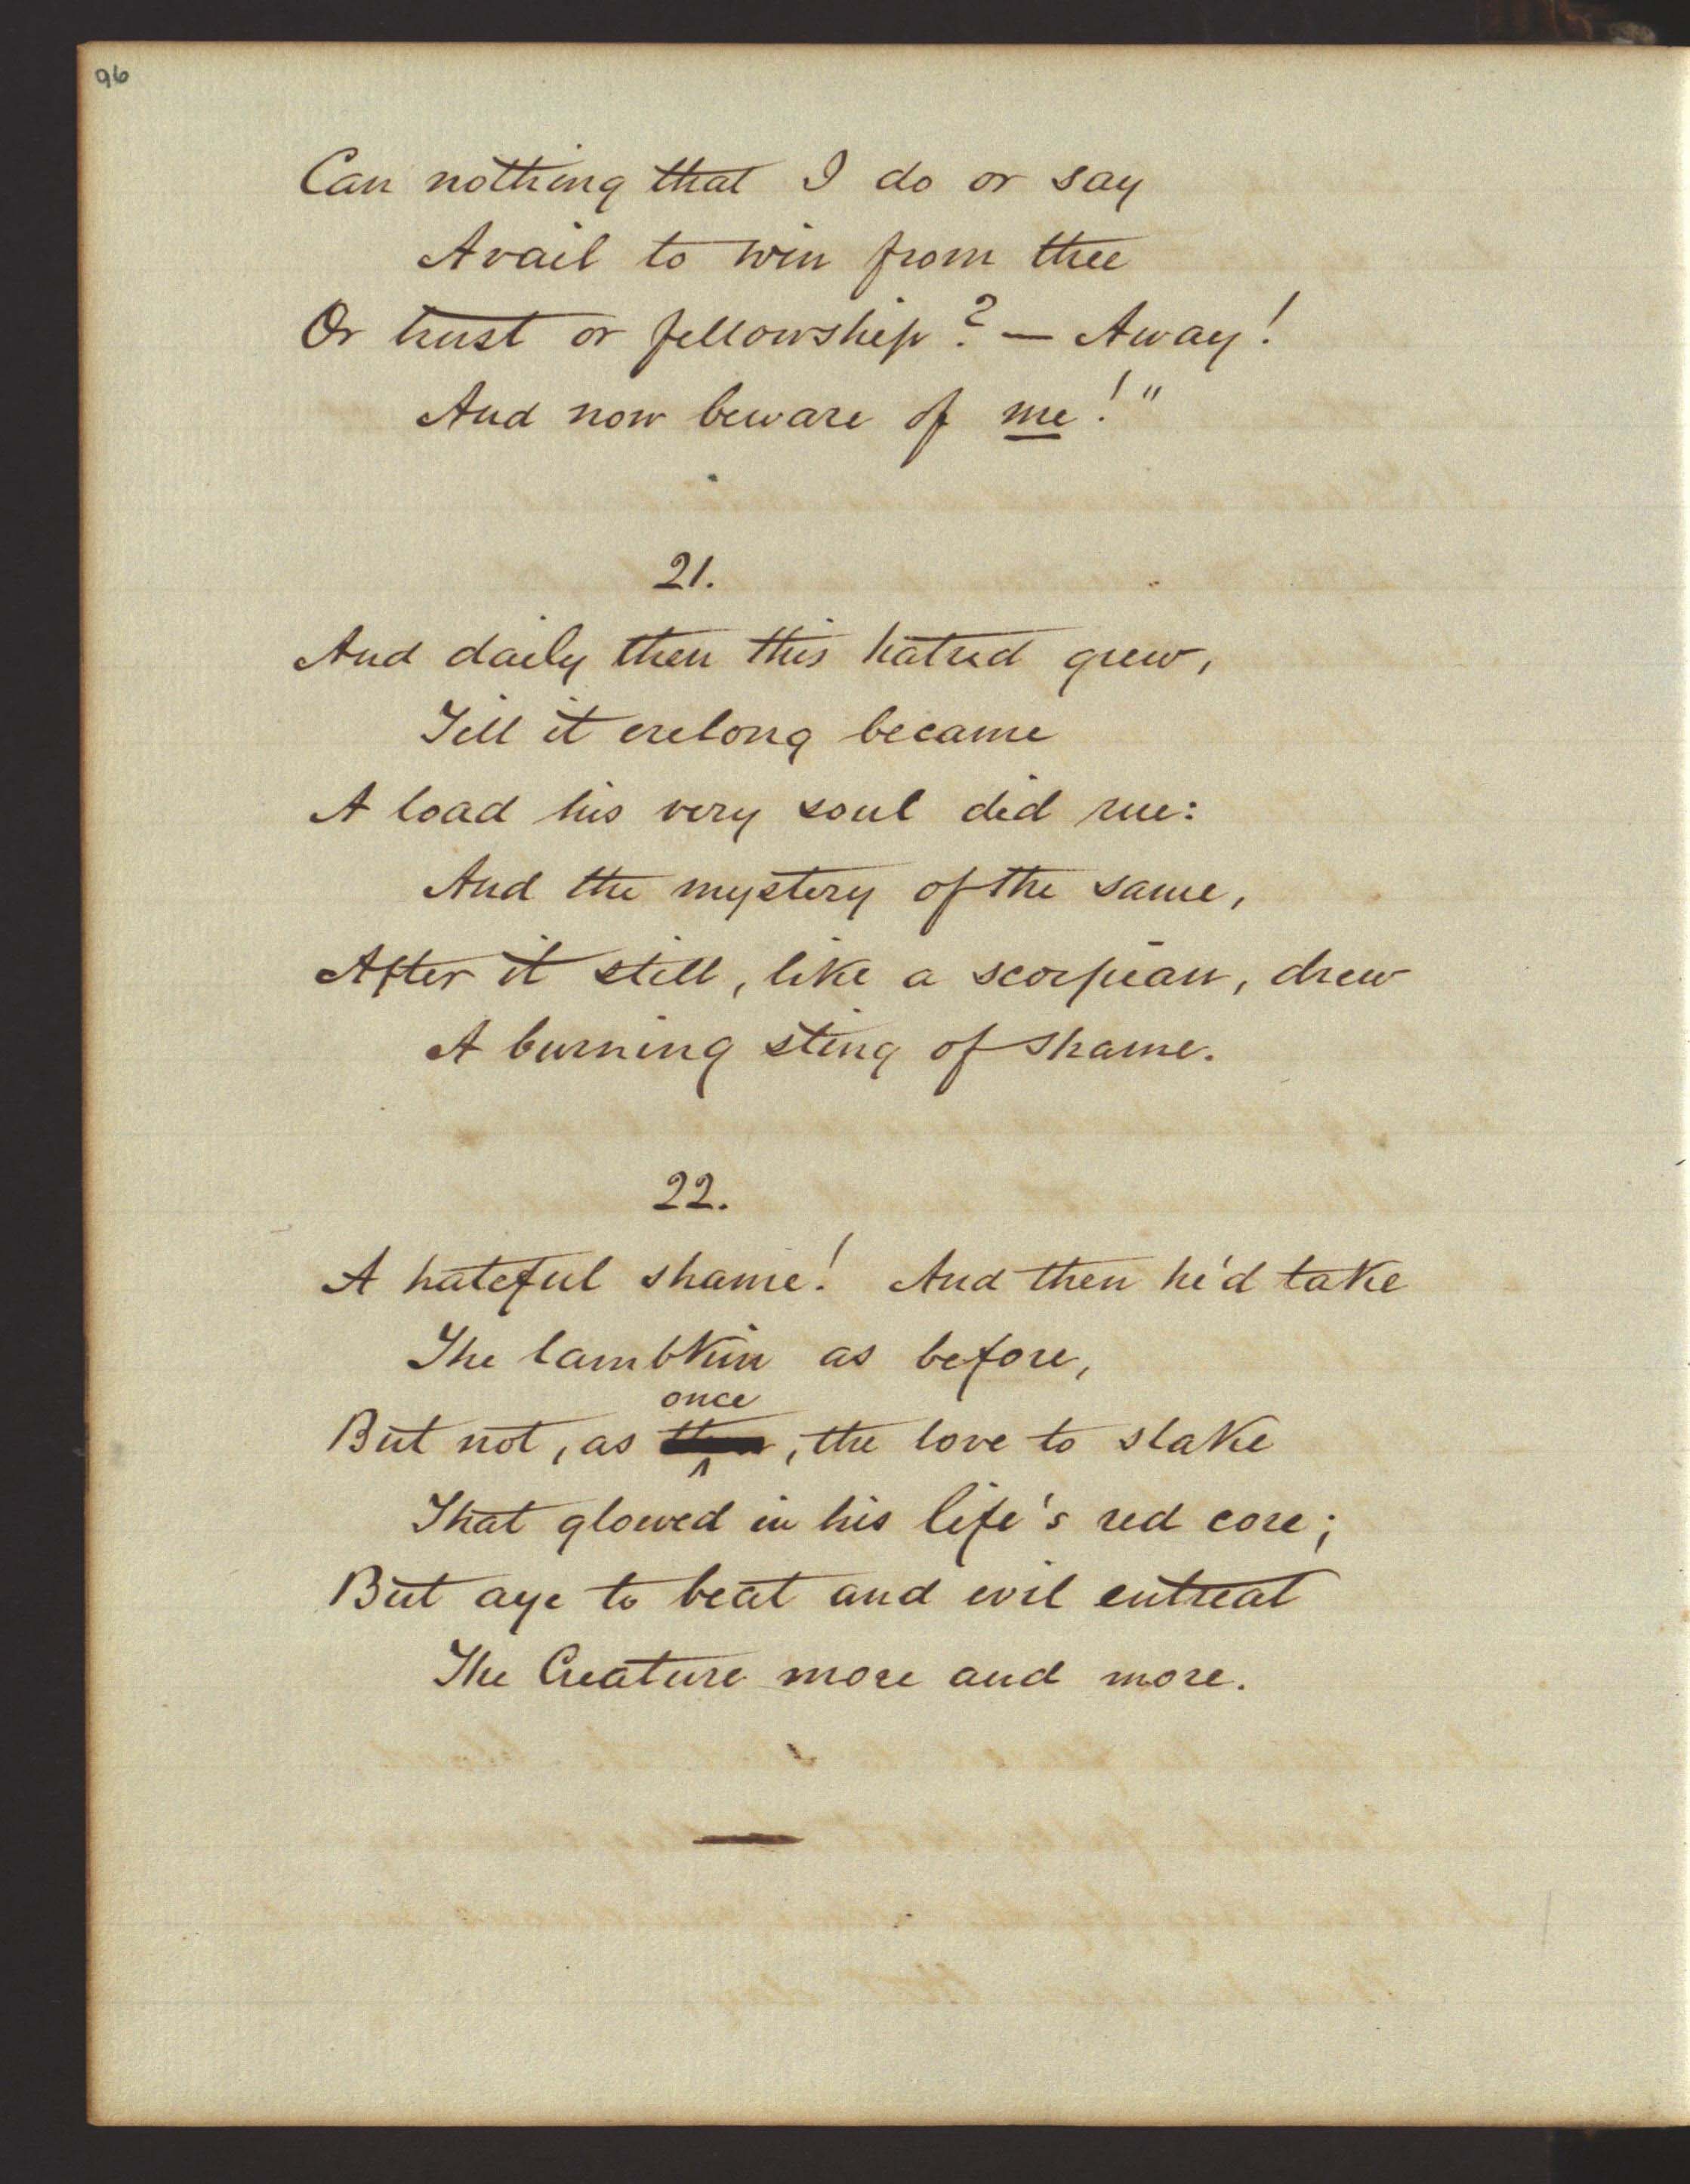 96
Can nothing that I do or say
Avail to win from thee
Or trust or fellowship? — Away!
And now beware of me!"
21.
And daily then this hatred grew,
Till it erelong became
A load his very soul did rue:
And the mystery of the same,
After it still, like a scorpion, drew
A burning sting of shame.
22.
A hateful shame! And then he'd take
The lambkin as before,
once
But not, as , the love to slake
That glowed in his life's red core;
But aye to beat and evil entreat
The Creature more and more.